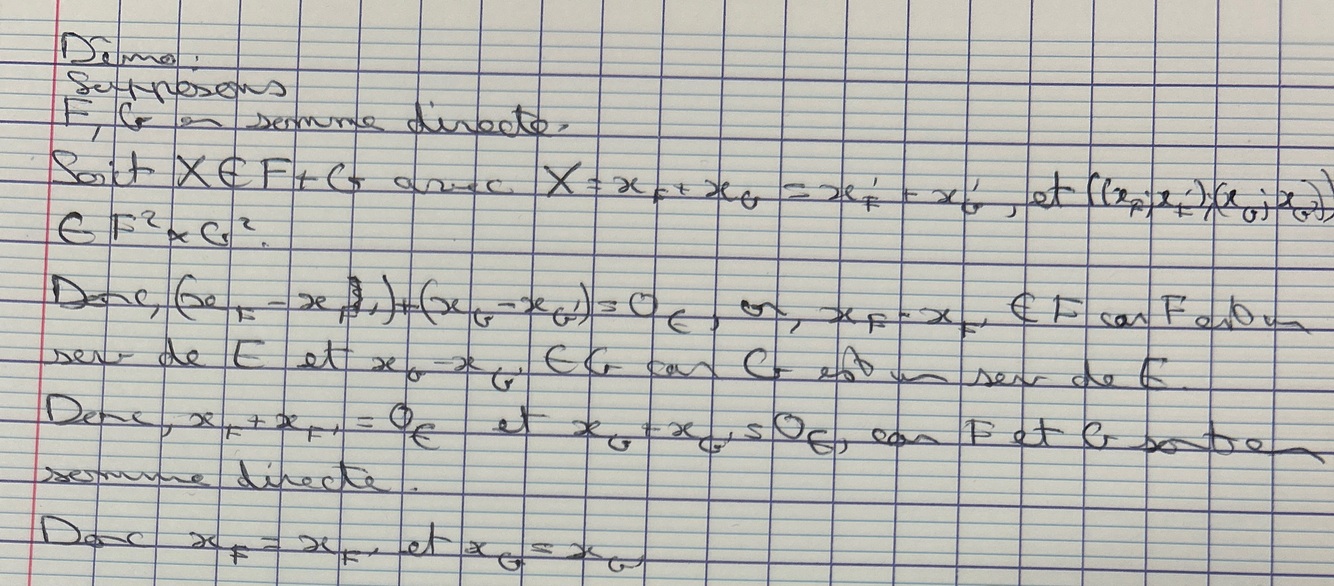 Démo :
Supposons
F, G en somme directe.
Soit X ∈ F + G avec X = x_F + x_G = x'_F + x'_G, et ((x_F; x_F'); (x_G; x_G'))
∈ F² × G².
Donc, (x_F - x_F') + (x_G - x_G') = 0_E, or, x_F - x_F' ∈ F car F est un
sev de E et x_G - x_G' ∈ G car G est un sev de E.
Donc, x_F + x_F' = 0_E et x_G + x_G' = 0_E, car F et G sont en
somme directe.
Donc x_F = x_F' et x_G = x_G'